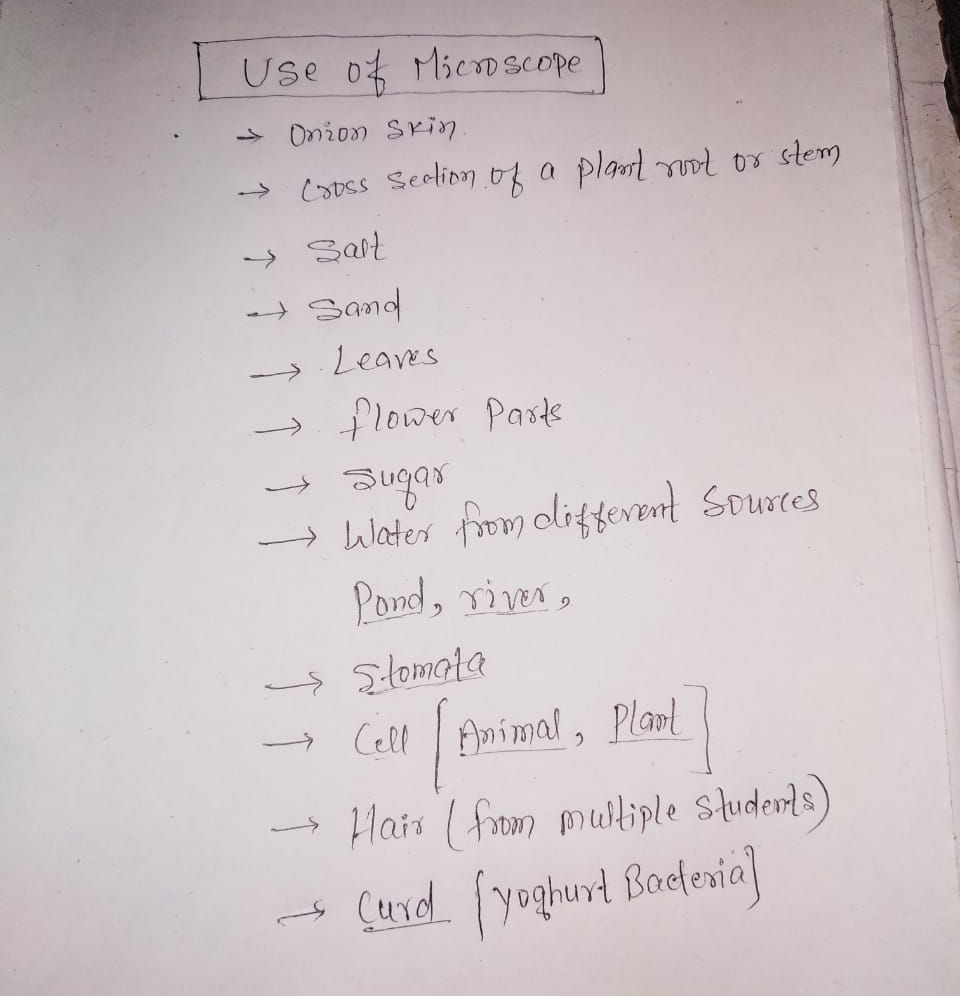 Use of Microscope
→ Onion Skin.
→ Cross Section of a plant root or stem
→ Salt
→ Sand
→ Leaves
→ flower Parts
→ Sugar
→ Water from different Sources
Pond, river,
→ Stomata
→ Cell [Animal, Plant]
→ Hair (from multiple Students)
→ Curd [yoghurt Bacteria]